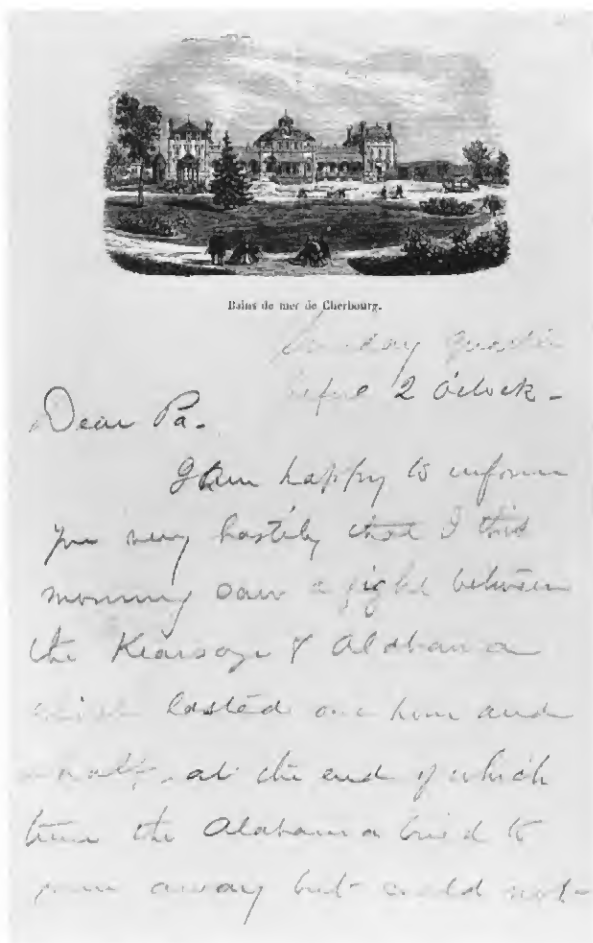 Bains de mer de Cherbourg.
Sunday quarter
before 2 O'clock -
Dear Pa.
I am happy to inform
you very hastily that I this
morning saw a fight between
the Kearsage & Alabama
which lasted one hour and
a half, at the end of which
time the Alabama tried to
run away but could not -